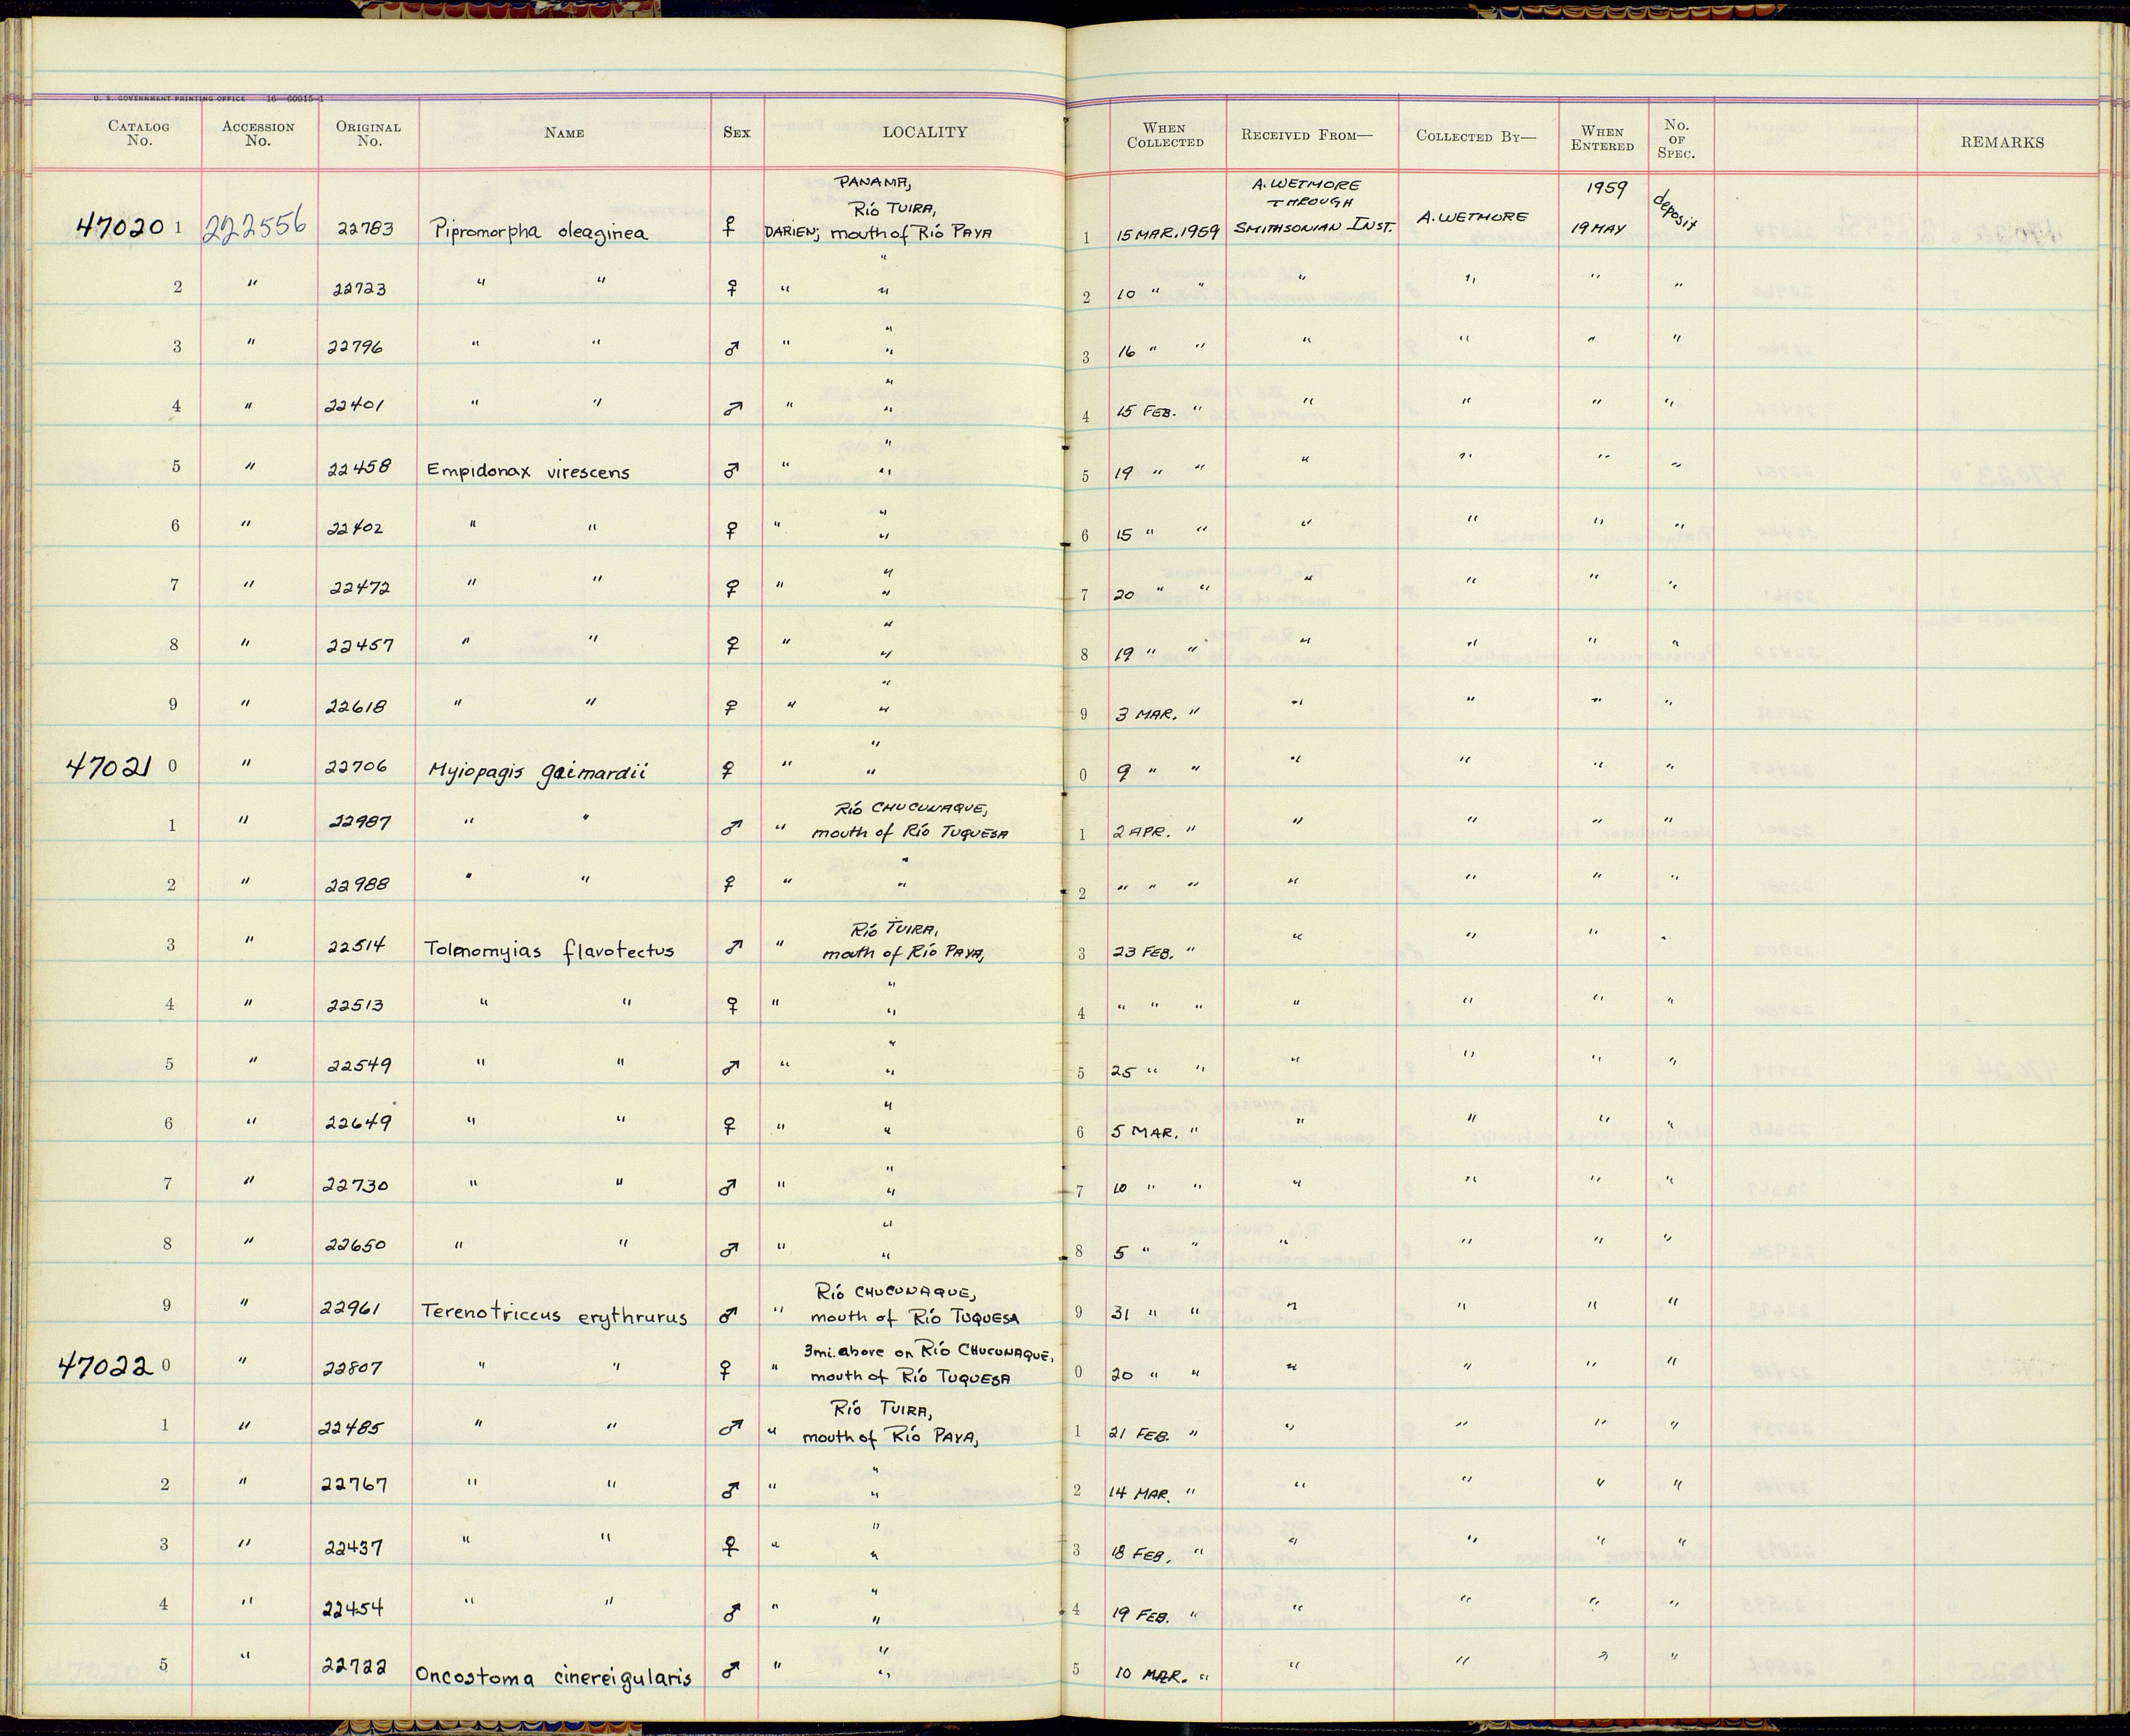 U. S. GOVERNMENT PRINTING OFFICE 16—60015-1
CATALOG No. ACCESSION No. ORIGINAL No. NAME SEX LOCALITY WHEN COLLECTED RECEIVED FROM— COLLECTED BY— WHEN ENTERED No. OF SPEC. REMARKS
PANAMA, A. WETMORE 1959
Río TUIRA, THROUGH
47020 1 222556 22783 Pipromorpha oleaginea ♀ DARIEN; mouth of Río PAYA 1 15 MAR. 1959 SMITHSONIAN INST. A. WETMORE 19 MAY deposit
"
2 " 22723 " " ♀ " " 2 10 " " " " " "
"
3 " 22796 " " ♂ " " 3 16 " " " " " "
"
4 " 22401 " " ♂ " " 4 15 FEB. " " " " "
"
5 " 22458 Empidonax virescens ♂ " " 5 19 " " " " " "
"
6 " 22402 " " ♀ " " 6 15 " " " " " "
"
7 " 22472 " " ♀ " " 7 20 " " " " " "
"
8 " 22457 " " ♀ " " 8 19 " " " " " "
"
9 " 22618 " " ♀ " " 9 3 MAR. " " " " "
"
47021 0 " 22706 Myiopagis gaimardii ♀ " " 0 9 " " " " " "
Río CHUCUNAQUE,
1 " 22987 " " ♂ " mouth of Río TUQUESA 1 2 APR. " " " " "
"
2 " 22988 " " ♀ " " 2 " " " " " " "
Río TUIRA,
3 " 22514 Tolmomyias flavotectus ♂ " mouth of Río PAYA, 3 23 FEB. " " " " "
"
4 " 22513 " " ♀ " " 4 " " " " " " "
"
5 " 22549 " " ♂ " " 5 25 " " " " " "
"
6 " 22649 " " ♀ " " 6 5 MAR. " " " " "
"
7 " 22730 " " ♂ " " 7 10 " " " " " "
"
8 " 22650 " " ♂ " " 8 5 " " " " " "
Río CHUCUNAQUE,
9 " 22961 Terenotriccus erythrurus ♂ " mouth of Río TUQUESA 9 31 " " " " " "
3mi. above on Río CHUCUNAQUE,
47022 0 " 22807 " " ♀ " mouth of Río TUQUESA 0 20 " " " " " "
Río TUIRA,
1 " 22485 " " ♂ " mouth of Río PAYA, 1 21 FEB. " " " " "
"
2 " 22767 " " ♂ " " 2 14 MAR. " " " " "
"
3 " 22437 " " ♀ " " 3 18 FEB. " " " " "
"
4 " 22454 " " ♂ " " 4 19 FEB. " " " " "
"
5 " 22722 Oncostoma cinereigularis ♂ " " 5 10 MAR. " " " " "